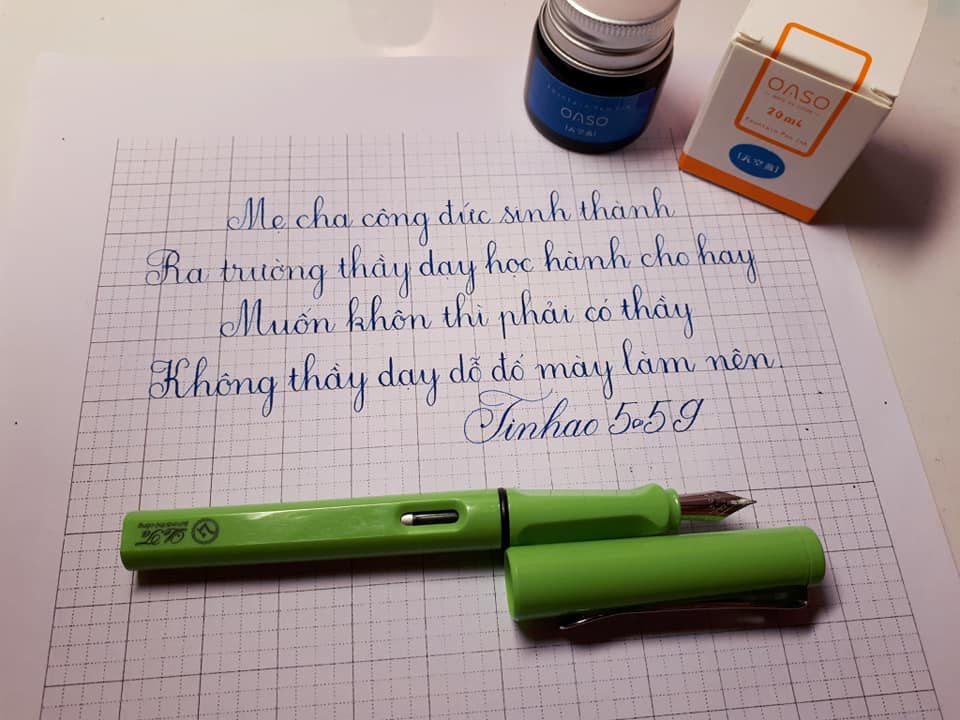 OASO
20mL
Fountain Pen Ink
[天空蓝]
Fountain Pen Ink
OASO
[天空蓝]
Mẹ cha công đức sinh thành
Ra trường thầy dạy học hành cho hay
Muốn khôn thì phải có thầy
Không thầy dạy dỗ đố mày làm nên.
Tinhao 5059